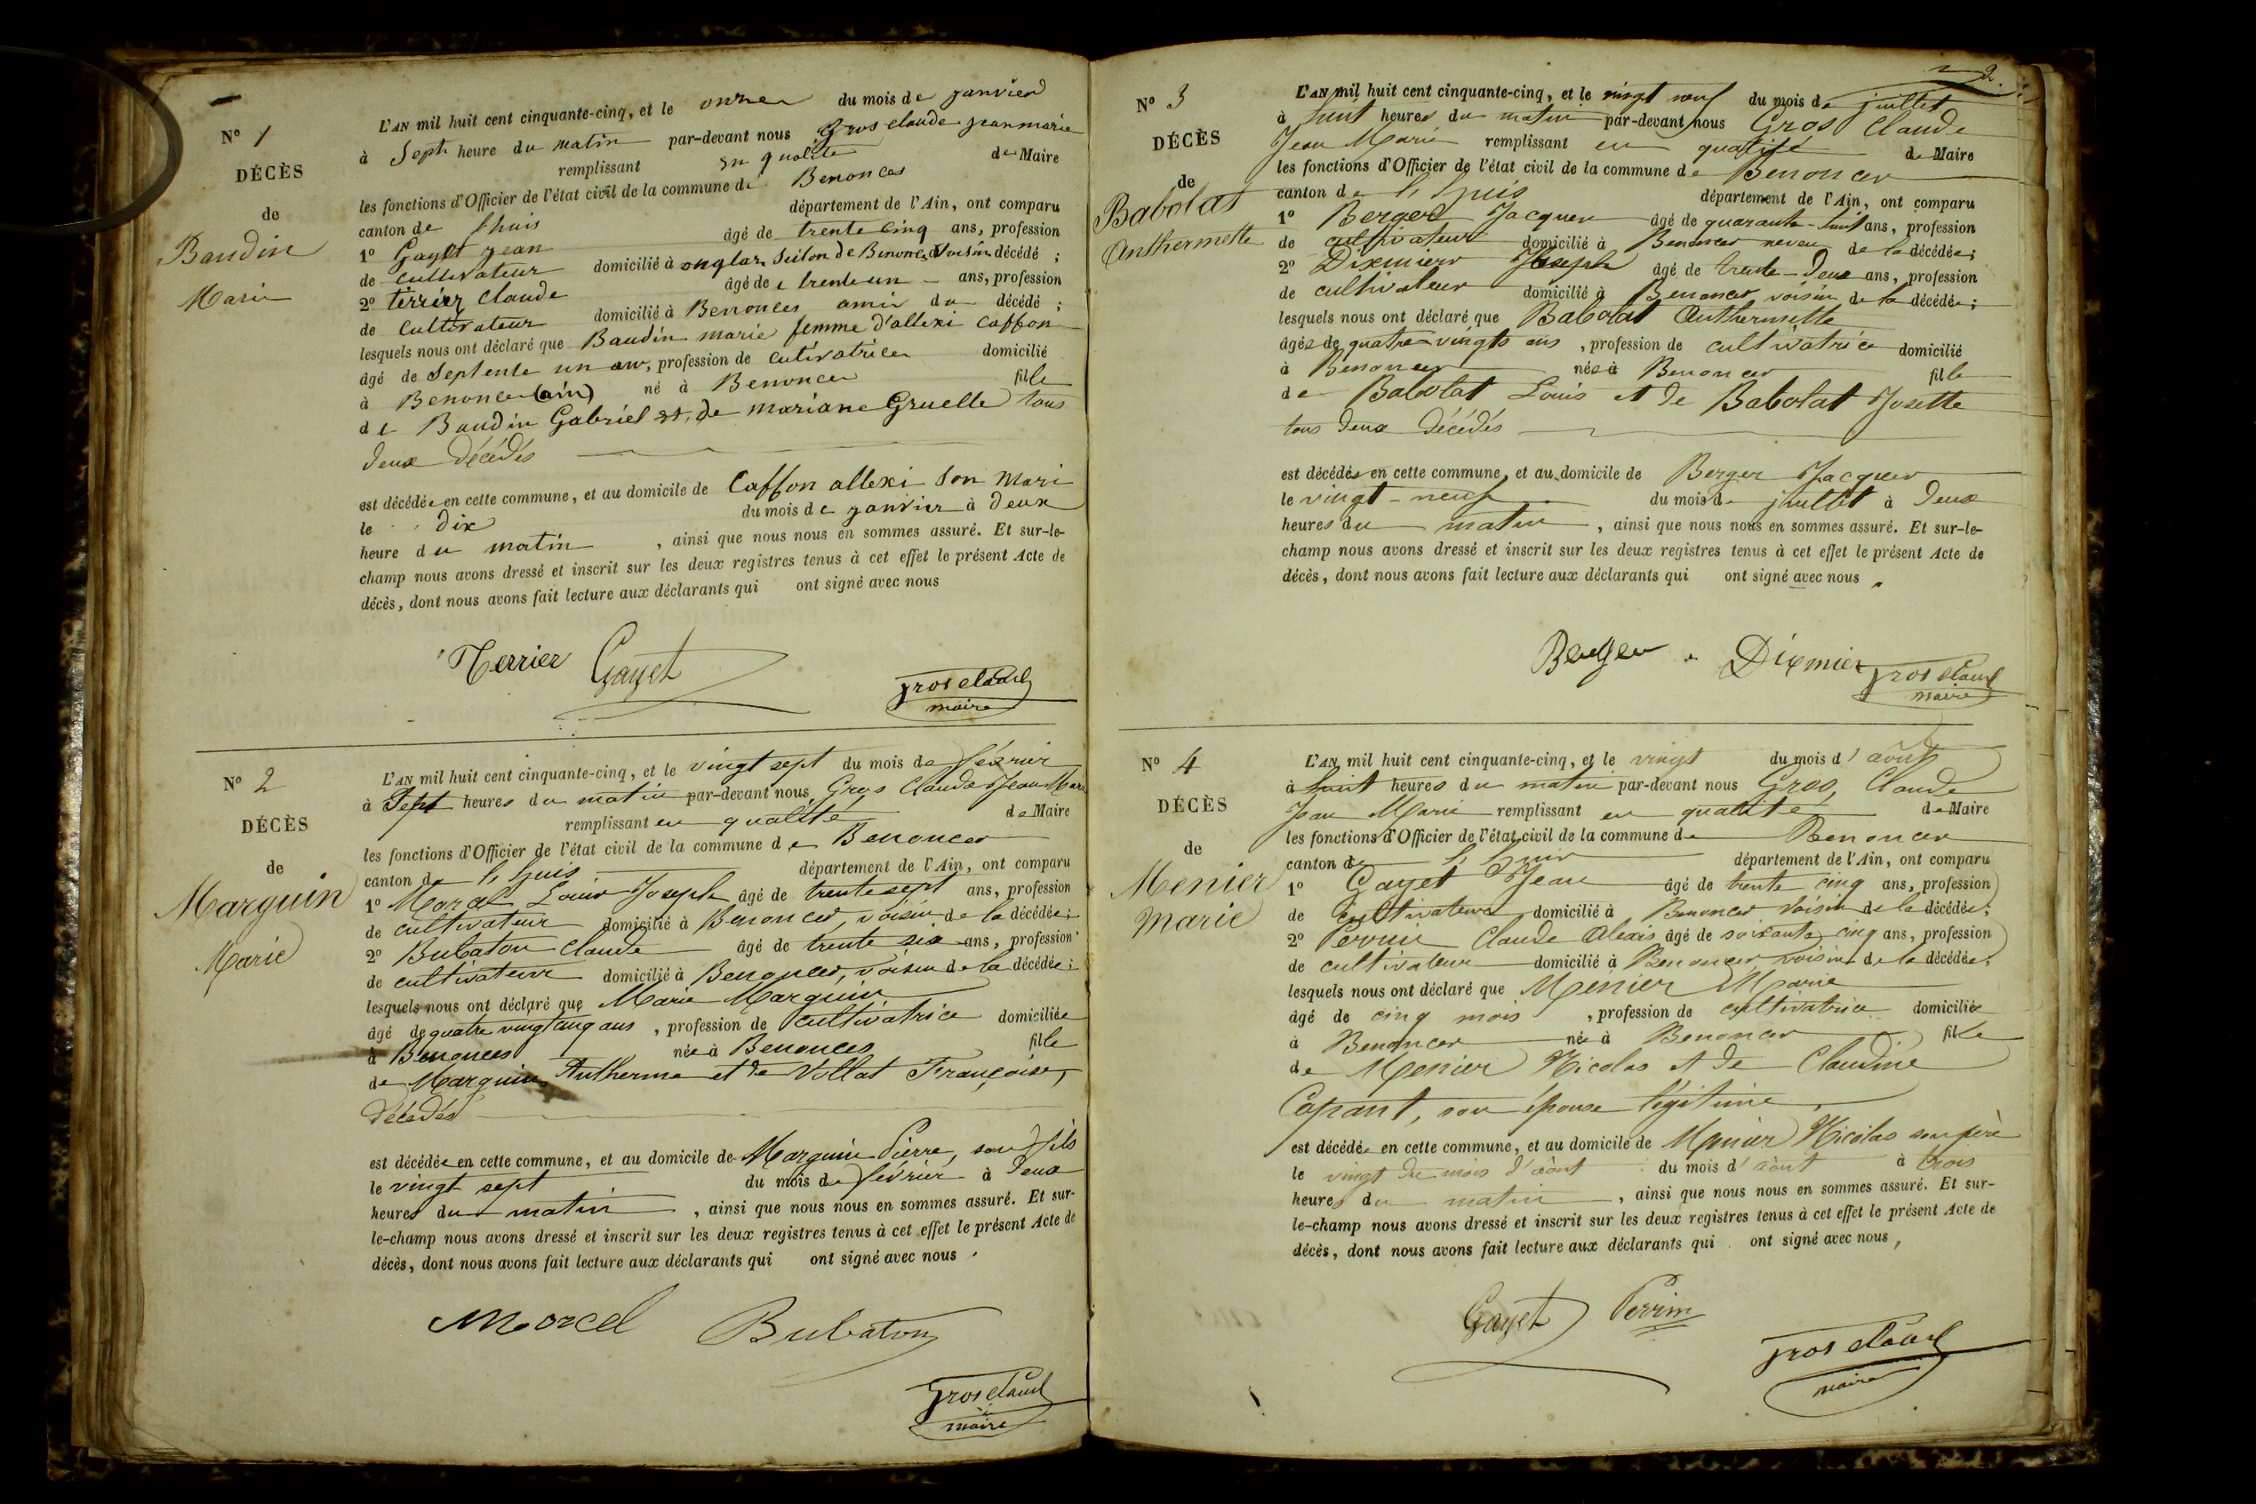 N° 1
DÉCÈS
de
Baudin
Marie
L'AN mil huit cent cinquante-cinq, et le onze du mois de janvier
à Sept heure du matin par-devant nous Gros claude jean marie
remplissant En qualité de Maire
les fonctions d'Officier de l'état civil de la commune de Benonces
canton de lhuis département de l'Ain, ont comparu
1° Gayet jean âgé de trente cinq ans, profession
de cultivateur domicilié à onglas Section de Benonces Voisin décédé ;
2° terrier claude âgé de trente un ans, profession
de cultivateur domicilié à Benonces amis du décédé ;
lesquels nous ont déclaré que Baudin marie femme d'allexi Caffon
âgé de Septente un an, profession de cutivatrice domicilié
à Benonce (ain) né à Benonces fille
de Baudin Gabriel et de mariane Gruelle tous
deux décédés
est décédée en cette commune, et au domicile de Caffon allexi Son Mari
le dix du mois de janvier à deux
heure du matin , ainsi que nous nous en sommes assuré. Et sur-le-
champ nous avons dressé et inscrit sur les deux registres tenus à cet effet le présent Acte de
décès, dont nous avons fait lecture aux déclarants qui ont signé avec nous
Terrier Gayet
gros claud
maire
N° 2
DÉCÈS
de
Marguin
Marie
L'AN mil huit cent cinquante-cinq, et le vingt sept du mois de février
à Sept heures du matin par-devant nous Gros Claude Jean Mari
remplissant en qualité de Maire
les fonctions d'Officier de l'état civil de la commune de Benonces
canton de l'huis département de l'Ain, ont comparu
1° Louis Joseph âgé de trente sept ans, profession
de cultivateur domicilié à Benonces, voisin de la décédée ;
2° Bubaton Claude âgé de trente six ans, profession
de cultivateur domicilié à Benonces, voisin de la décédée ;
lesquels nous ont déclaré que Marie Marguin
âgé de quatre vingt cinq ans , profession de cultivatrice domiciliée
à Benonces née à Benonces fille
de Marguin Antherme et de Vollat Françoise,
décédés
est décédée en cette commune, et au domicile de Marguin Pierre, son fils
le vingt sept du mois de février à deux
heures du matin , ainsi que nous nous en sommes assuré. Et sur-
le-champ nous avons dressé et inscrit sur les deux registres tenus à cet effet le présent Acte de
décès, dont nous avons fait lecture aux déclarants qui ont signé avec nous .
Morcel Bubaton
gros claud
maire
2
N° 3
DÉCÈS
de
Babolat
Anthermette
L'AN mil huit cent cinquante-cinq, et le vingt neuf du mois de juillet
à huit heures du matin par-devant nous Gros Claude
Jean Marie remplissant en qualité de Maire
les fonctions d'Officier de l'état civil de la commune de Benonces
canton de l'huis département de l'Ain, ont comparu
1° Berger Jacques âgé de quarante-huit ans, profession
de cultivateur domicilié à Benonces neveu de la décédée ;
2° Dixmier Joseph âgé de trente-deux ans, profession
de cultivateur domicilié à Benonces voisin de la décédée ;
lesquels nous ont déclaré que Babolat Anthermette
âgée de quatre vingts ans , profession de cultivatrice domicilié
à Benonces née à Benonces fille
de Babolat Louis et de Babolat Josette
tous deux décédés
est décédée en cette commune, et au domicile de Berger Jacques
le vingt-neuf du mois de juillet à deux
heures du matin , ainsi que nous nous en sommes assuré. Et sur-le-
champ nous avons dressé et inscrit sur les deux registres tenus à cet effet le présent Acte de
décès, dont nous avons fait lecture aux déclarants qui ont signé avec nous .
Berger Dixmier gros claud
maire
N° 4
DÉCÈS
de
Menier
Marie
L'AN mil huit cent cinquante-cinq, et le vingt du mois d'août
à huit heures du matin par-devant nous Gros Claude
Jean Marie remplissant en qualité de Maire
les fonctions d'Officier de l'état civil de la commune de Benonces
canton de l'huis département de l'Ain, ont comparu
1° Gayet Jean âgé de trente cinq ans, profession
de cultivateur domicilié à Benonces voisin de la décédée ;
2° Perrin Claude Alexis âgé de soixante cinq ans, profession
de cultivateur domicilié à Benonces voisin de la décédée ;
lesquels nous ont déclaré que Menier Marie
âgé de cinq mois , profession de cultivatrice domiciliée
à Benonces née à Benonces fille
de Menier Nicolas et de Claudine
Copant, son épouse légitime
est décédée en cette commune, et au domicile de Menier Nicolas son père
le vingt du mois d'août du mois d'août à trois
heures du matin , ainsi que nous nous en sommes assuré. Et sur-
le-champ nous avons dressé et inscrit sur les deux registres tenus à cet effet le présent Acte de
décès, dont nous avons fait lecture aux déclarants qui ont signé avec nous ,
Gayet Perrin
gros claud
maire